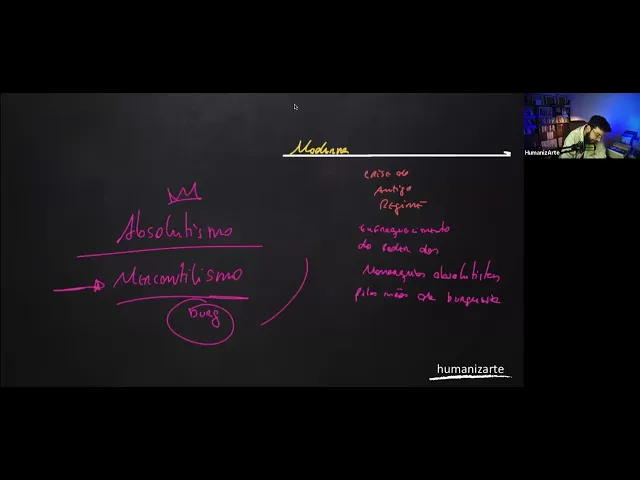 Moderna
crise do
Antigo
Regime
Absolutismo
Mercantilismo
Burg
enfraquecimento
do poder dos
Monarquias absolutistas
pelas mãos da burguesia
humanizarte
HumanizArte